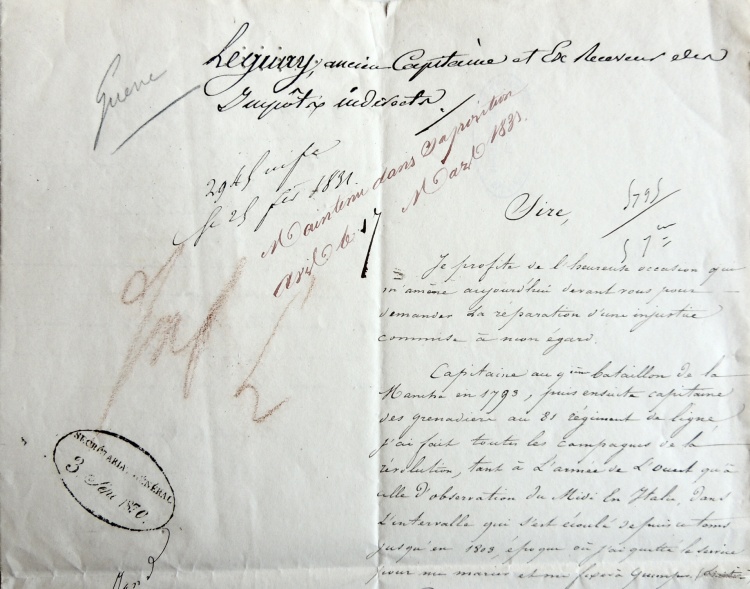 Guerre
Leguay, ancien Capitaine et Ex Receveur des
Impôts indirects.
le 25 1831.
Maintenu dans sa position
avril le 17 1831.
Sire,
Je profite de l'heureuse occasion qui
m'amène aujourd'hui devant vous pour
demander la réparation d'une injustice
commise à mon égard.
Capitaine au 9ème bataillon de la
Manche en 1793, puis ensuite capitaine
des grenadiers au 81 régiment de ligne,
j'ai fait toutes les campagnes de la
révolution, tant à L'armée de L'ouest qu'à
celle d'observation du Midi En Italie. Dans
L'intervalle qui s'est écoulé depuis ce tems
jusqu'en 1803, époque où j'ai quitté le service
pour me marier et me fixer à Quimper,
SECRÉTARIAT GÉNÉRAL
3